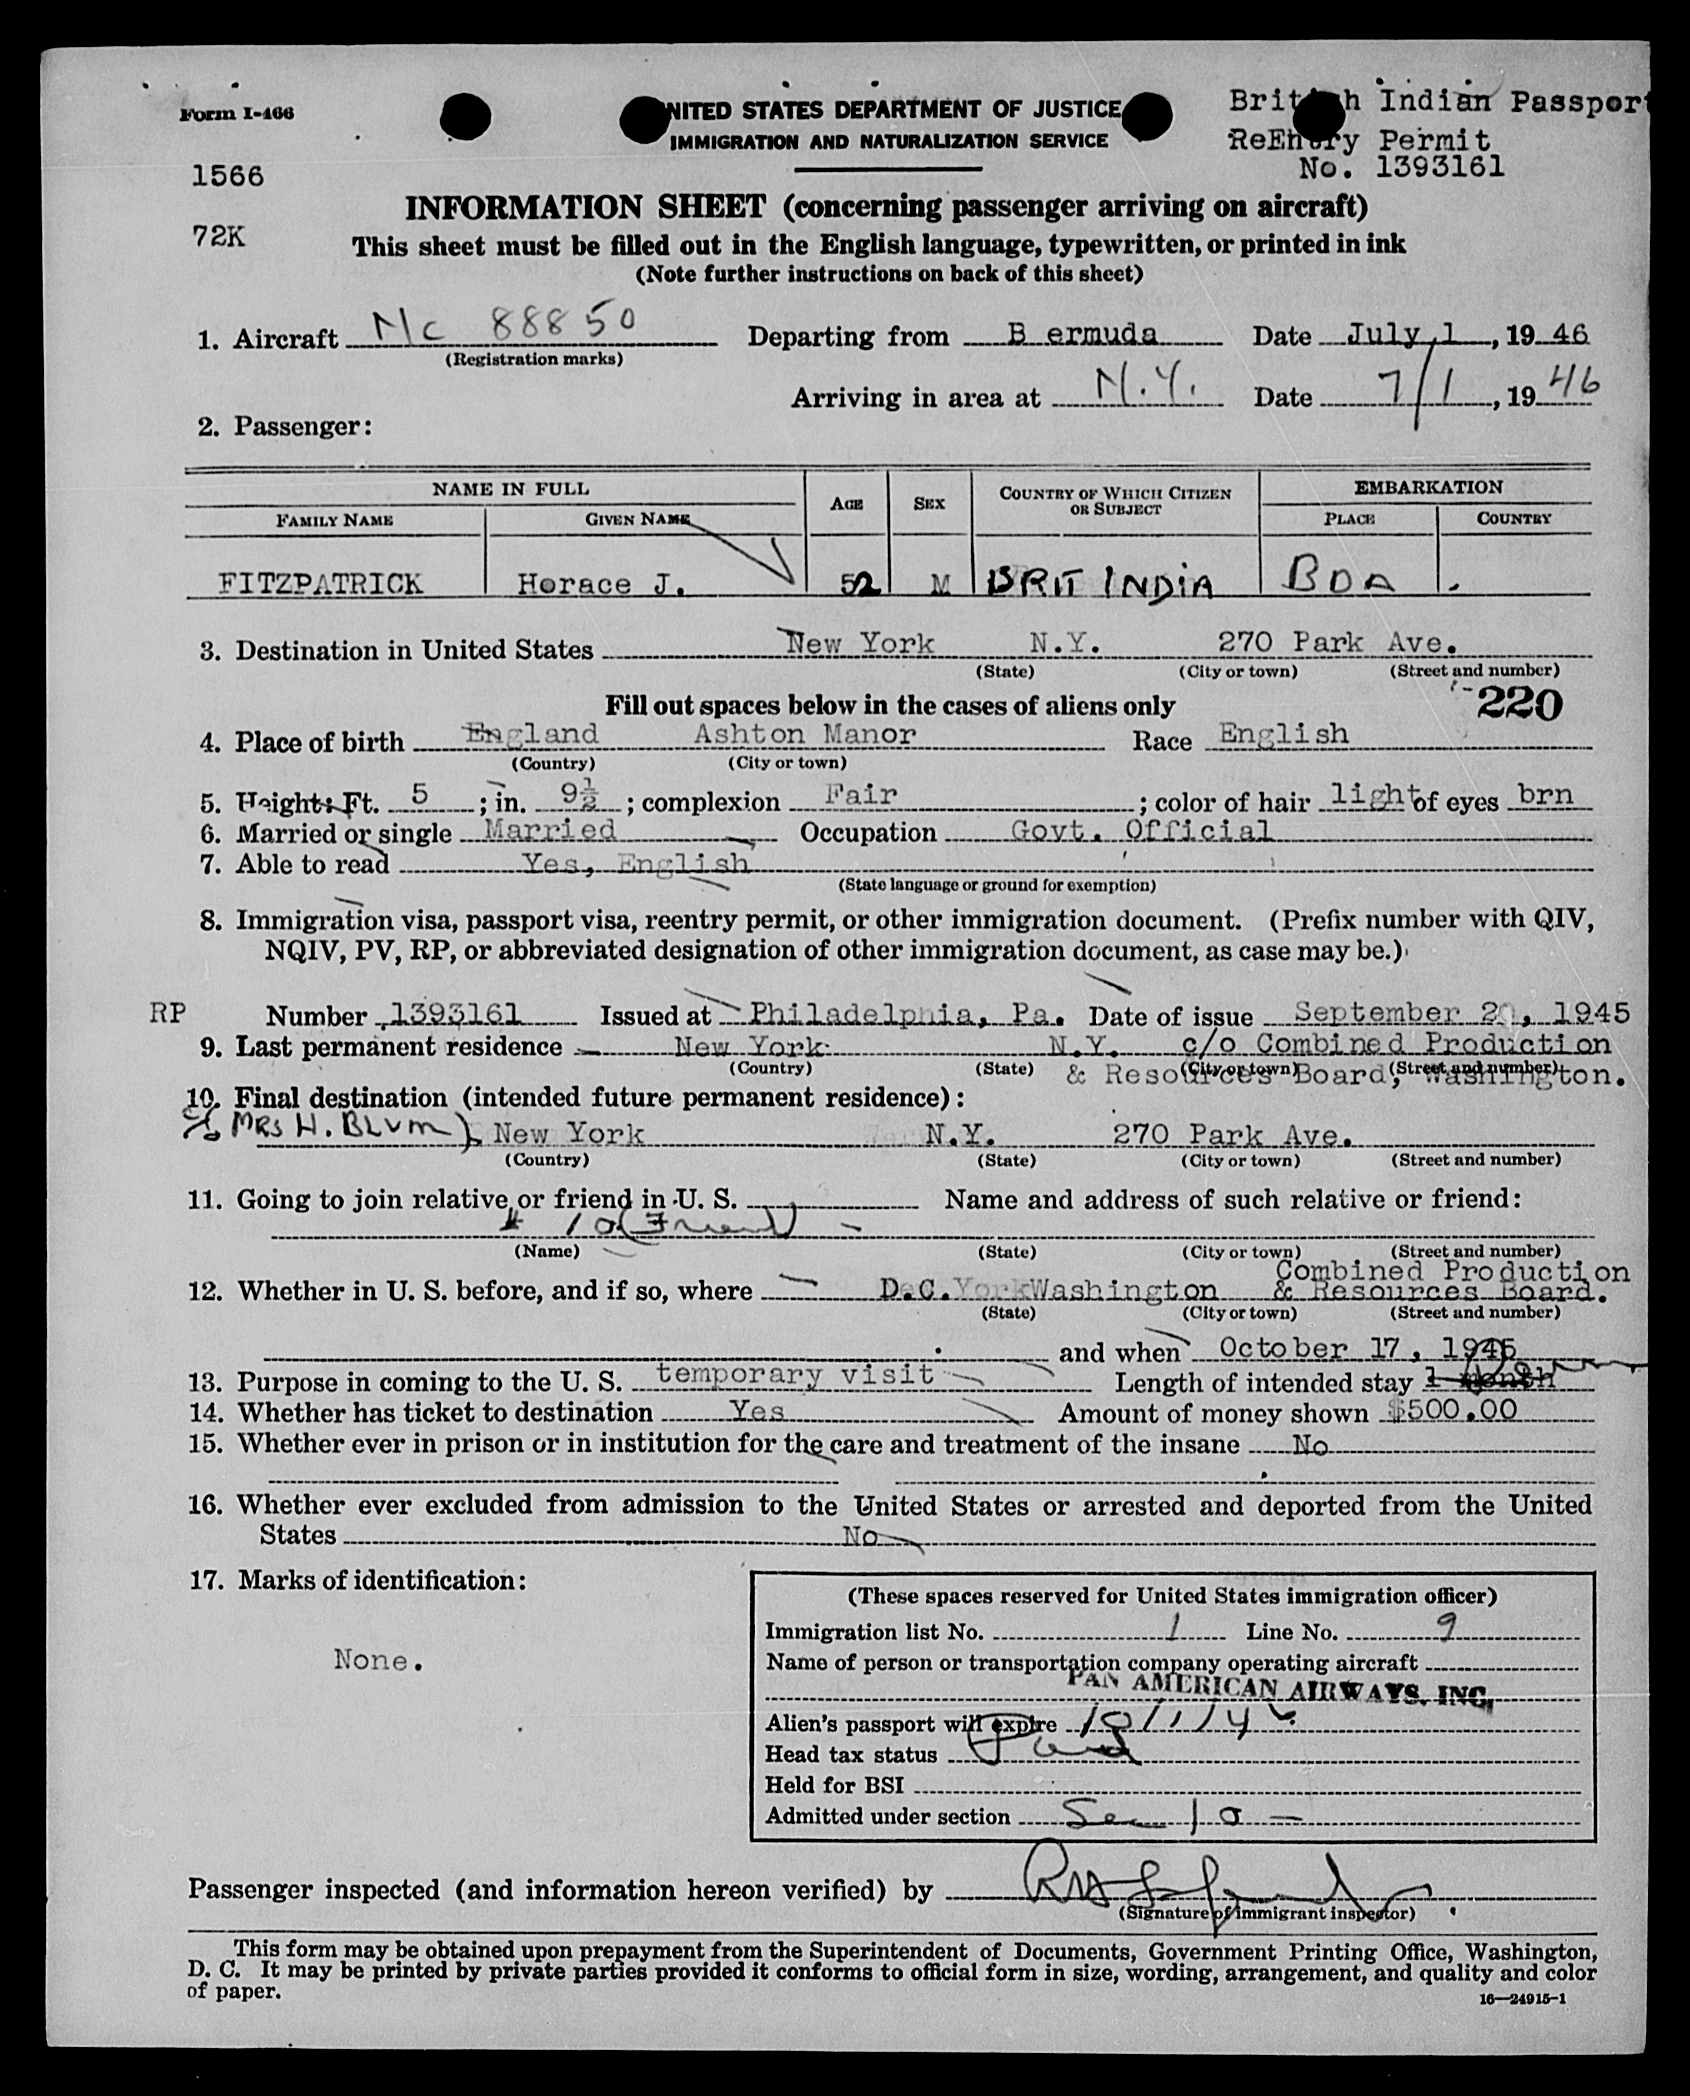 Form I-466
UNITED STATES DEPARTMENT OF JUSTICE
IMMIGRATION AND NATURALIZATION SERVICE
British Indian Passport
ReEntry Permit
No. 1393161
1566
72K
INFORMATION SHEET (concerning passenger arriving on aircraft)
This sheet must be filled out in the English language, typewritten, or printed in ink
(Note further instructions on back of this sheet)
1. Aircraft Nc 88850 Departing from B ermuda Date July 1, 1946
(Registration marks)
Arriving in area at N.Y. Date 7/1, 1946
2. Passenger:
NAME IN FULL AGE SEX COUNTRY OF WHICH CITIZEN OR SUBJECT EMBARKATION
FAMILY NAME GIVEN NAME PLACE COUNTRY
FITZPATRICK Horace J. 52 M BRIT INDIA BDA
3. Destination in United States New York N.Y. 270 Park Ave.
(State) (City or town) (Street and number)
Fill out spaces below in the cases of aliens only 220
4. Place of birth England Ashton Manor Race English
(Country) (City or town)
5. Height: Ft. 5; in. 9½; complexion Fair; color of hair light of eyes brn
6. Married or single Married Occupation Govt. Official
7. Able to read Yes, English
(State language or ground for exemption)
8. Immigration visa, passport visa, reentry permit, or other immigration document. (Prefix number with QIV,
NQIV, PV, RP, or abbreviated designation of other immigration document, as case may be.)
RP Number 1393161 Issued at Philadelphia, Pa. Date of issue September 20, 1945
9. Last permanent residence New York N.Y. c/o Combined Production
(Country) (State) (City or town) (Street and number)
& Resources Board, Washington.
10. Final destination (intended future permanent residence):
c/o MRS H. BLUM) New York N.Y. 270 Park Ave.
(Country) (State) (City or town) (Street and number)
11. Going to join relative or friend in U. S. Name and address of such relative or friend:
# 10 (Friend)
(Name) (State) (City or town) (Street and number)
Combined Production
12. Whether in U. S. before, and if so, where D.C. Washington & Resources Board.
(State) (City or town) (Street and number)
and when October 17, 1945
13. Purpose in coming to the U. S. temporary visit Length of intended stay 1 month
14. Whether has ticket to destination Yes Amount of money shown $500.00
15. Whether ever in prison or in institution for the care and treatment of the insane No
16. Whether ever excluded from admission to the United States or arrested and deported from the United
States No
17. Marks of identification:
None.
(These spaces reserved for United States immigration officer)
Immigration list No. 1 Line No. 9
Name of person or transportation company operating aircraft
PAN AMERICAN AIRWAYS, INC.
Alien's passport will expire
Head tax status Paid
Held for BSI
Admitted under section Sec 10 -
Passenger inspected (and information hereon verified) by
(Signature of immigrant inspector)
This form may be obtained upon prepayment from the Superintendent of Documents, Government Printing Office, Washington,
D. C. It may be printed by private parties provided it conforms to official form in size, wording, arrangement, and quality and color
of paper.
16—24915-1